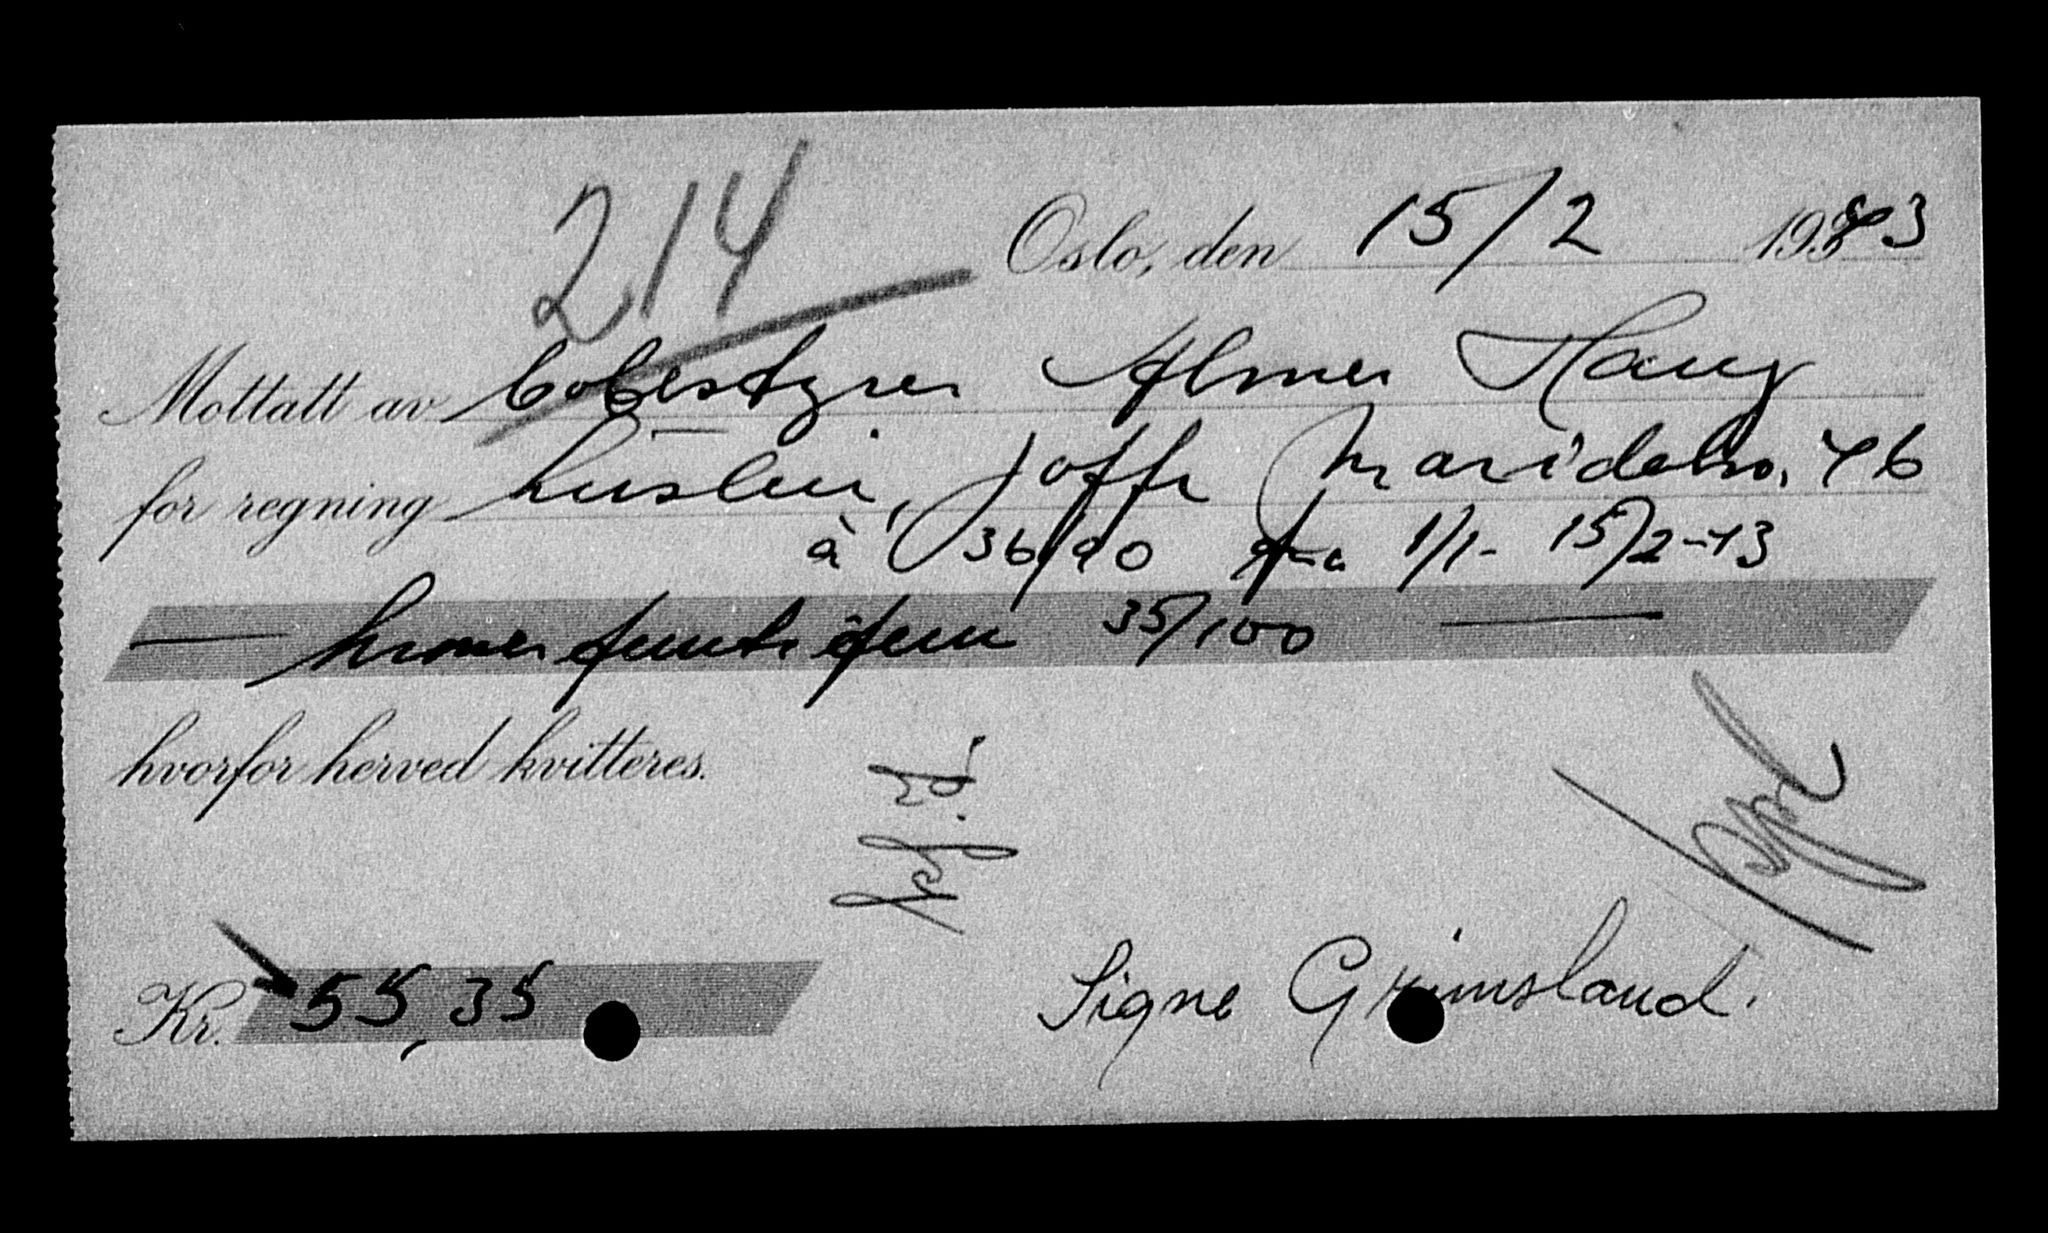 214
Oslo, den 15/2 1943
Mottatt av bobestyrer Almer Haug
for regning husleie, Joffe Maridalsv. 46
à 36/90 fra 1/1- 15/2-43
— kroner femtifem 35/100 —
hvorfor herved kvitteres.
Kr. 55,35
Signe Grimsland.